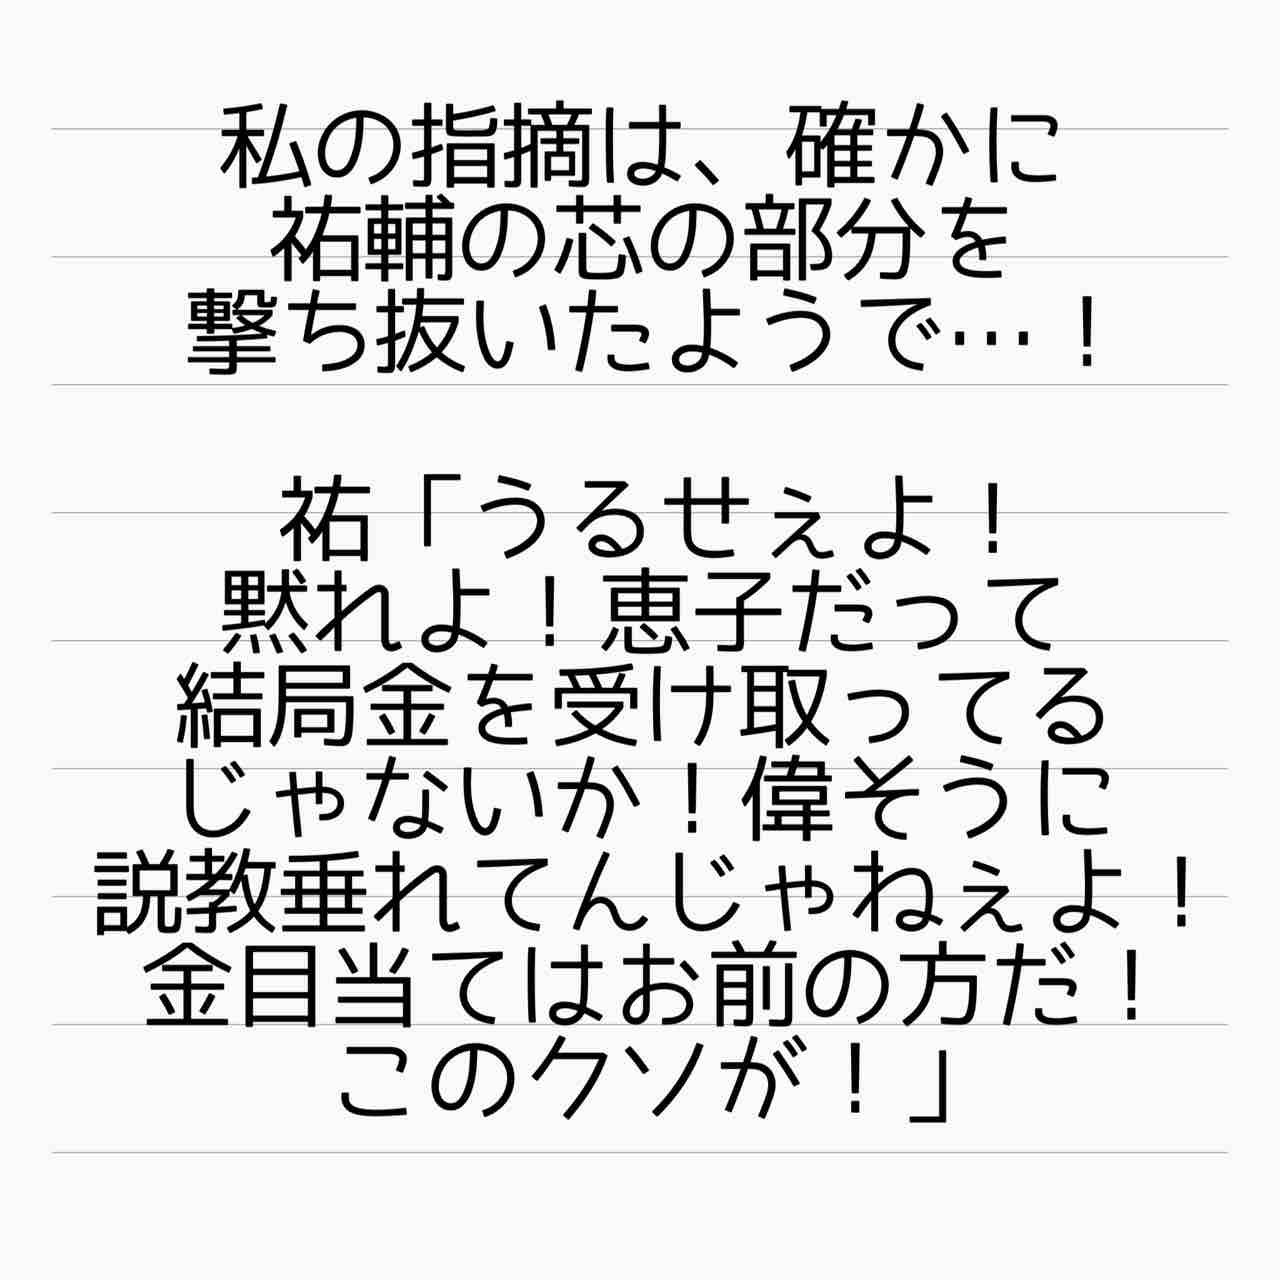 私の指摘は、確かに
祐輔の芯の部分を
撃ち抜いたようで…！
祐「うるせぇよ！
黙れよ！恵子だって
結局金を受け取ってる
じゃないか！偉そうに
説教垂れてんじゃねぇよ！
金目当てはお前の方だ！
このクソが！」